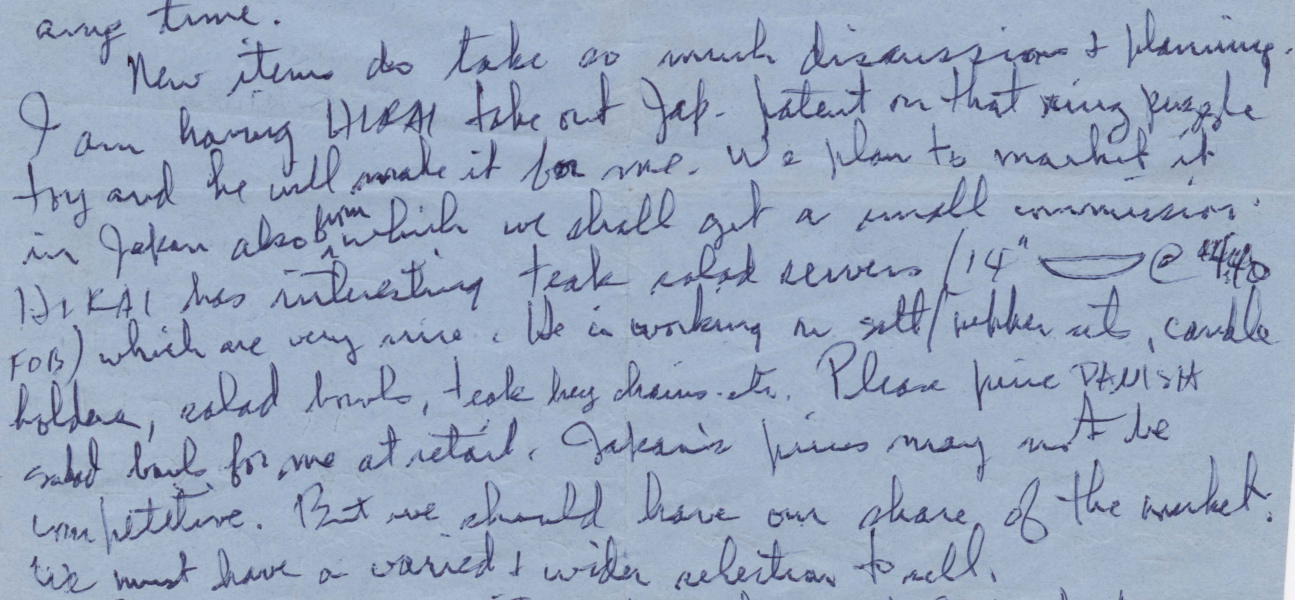 any time.
New items do take so much discussions & planning.
I am having HIKAI take out Jap. patent on that ring puzzle
toy and he will make it for me. We plan to market it
in Japan also from which we shall get a small commission.
HIKAI has interesting teak salad servers (14" @
FOB) which are very nice. He is working on salt/pepper sets, candle
holders, salad bowls, teak key chains etc. Please price DANISH
salad bowls for me at retail. Japan's prices may not be
competitive. But we should have our share of the market.
We must have a varied & wider selection to sell.